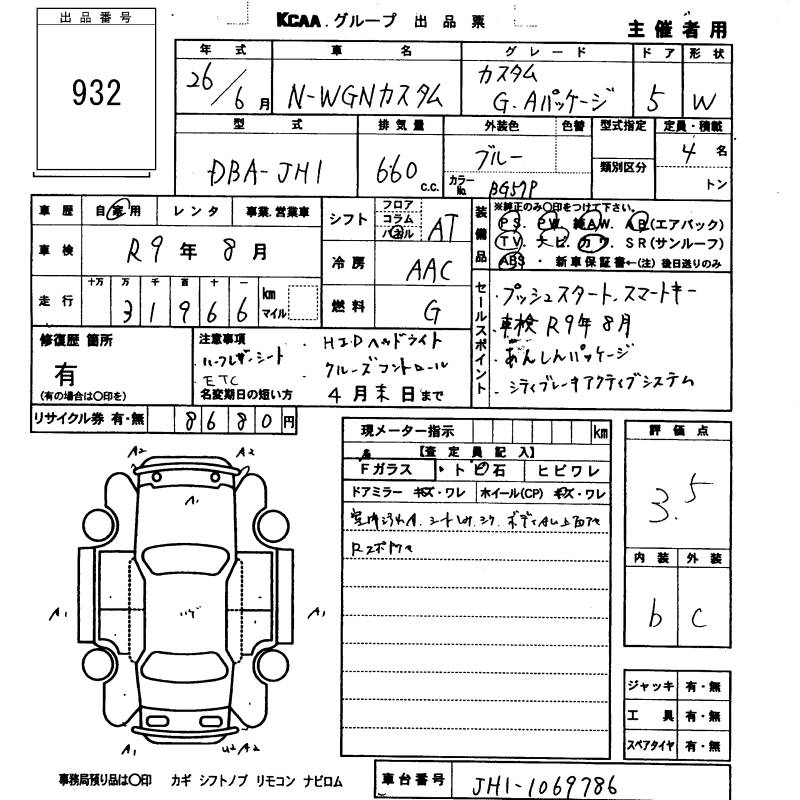 出品番号
932
KCAA.グループ 出品票
主催者用
年式 車名 グレード ドア 形状
26/6月 N-WGNカスタム カスタム G.Aパッケージ 5 W
型式 排気量 外装色 色替 型式指定 定員・積載
DBA-JH1 660 c.c. ブルー 類別区分 4名
カラーNo. BG57P トン
車歴 自家用 レンタ 事業.営業車
シフト フロア コラム パネル AT
装備品 ※純正のみ〇印をつけて下さい。
PS. PW. 純AW. AB(エアバック)
TV. ナビ. カワ. SR(サンルーフ)
ABS・新車保証書←(注)後日送りのみ
車検 R9年8月
冷房 AAC
走行 十万 万 千 百 十 一
31966 km マイル
燃料 G
セールスポイント
・プッシュスタート.スマートキー
・車検R9年8月
・あんしんパッケージ
・シティブレーキアクティブシステム
修復歴 箇所
有
(有の場合は〇印を)
注意事項 HIDヘッドライト
ハーフレザーシート クルーズコントロール
ETC
名変期日の短い方 4月末日まで
リサイクル券 有・無 8680円
現メーター指示 km
【査定員記入】
Fガラス ・トビ石 ヒビワレ
ドアミラー キズ・ワレ ホイール(CP) キズ・ワレ
評価点
3.5
内装 外装
b c
A2 A2
A1
A1 A1
A1 U2 A2
ジャッキ 有・無
工具 有・無
スペアタイヤ 有・無
事務局預り品は〇印 カギ シフトノブ リモコン ナビロム
車台番号 JH1-1069786